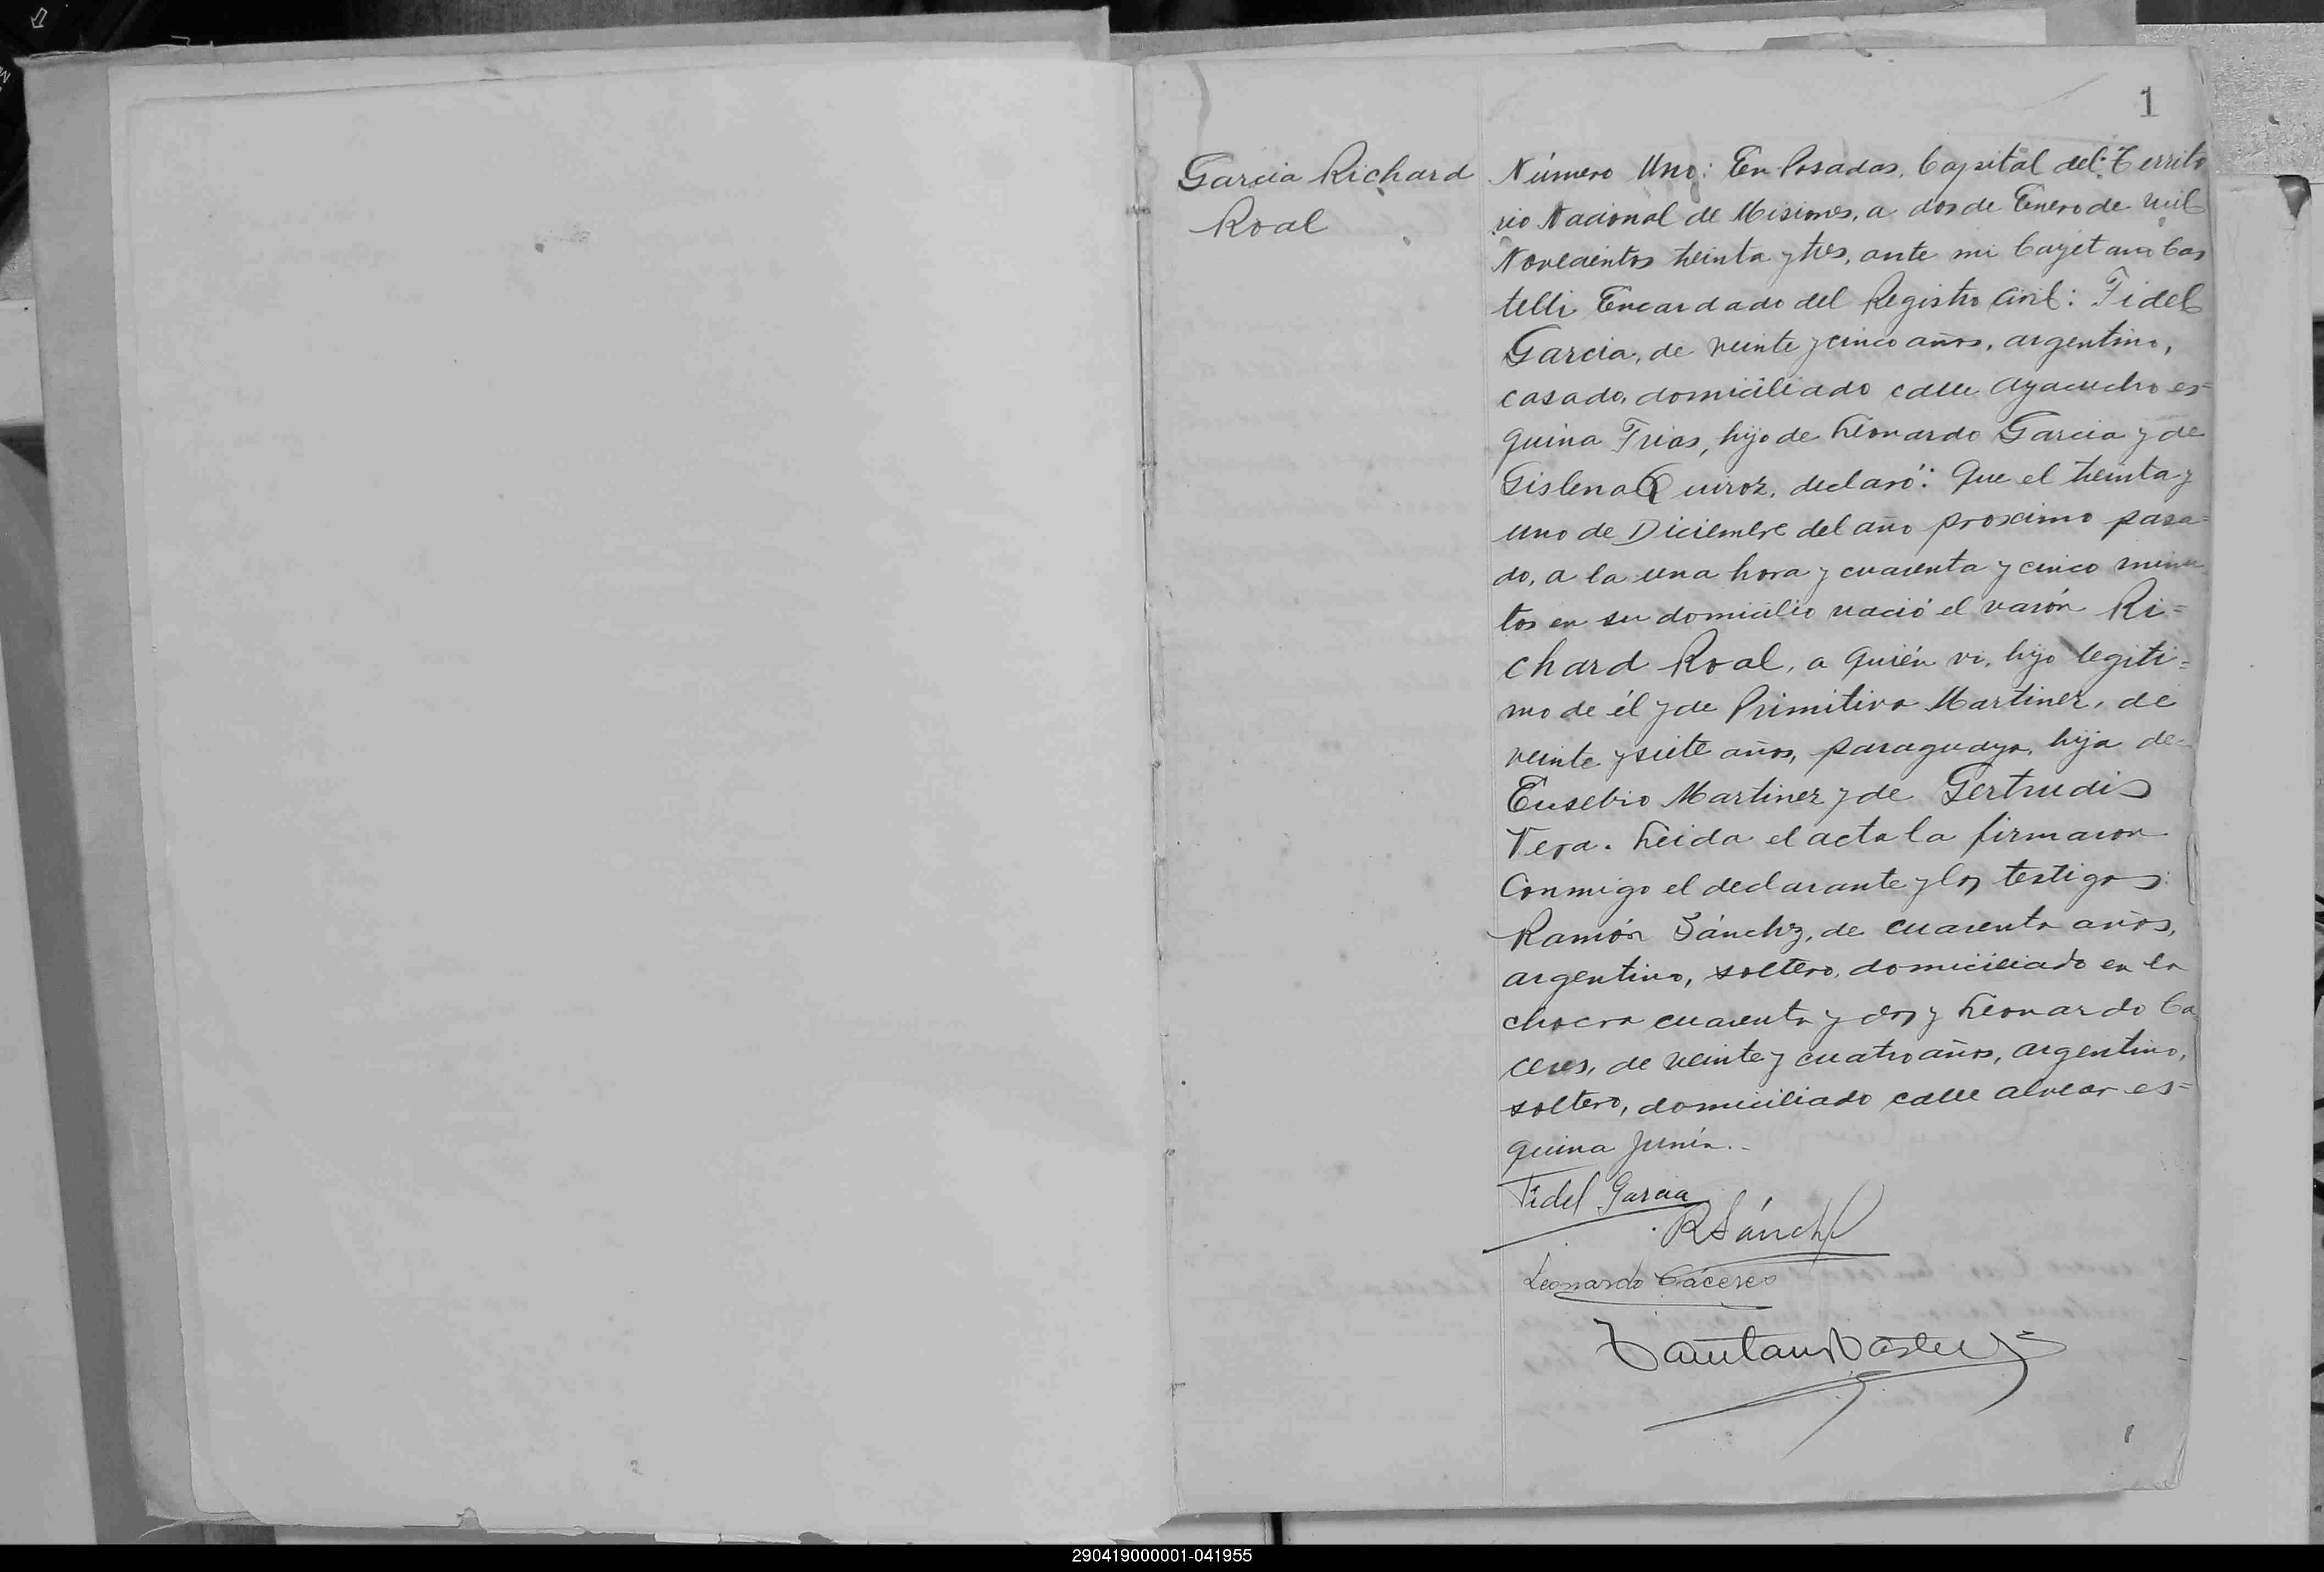 1
Garcia Richard
Roal
Número Uno: En Posadas, Capital del Territo
rio Nacional de Misiones, a dos de Enero de mil
Novecientos treinta y tres, ante mi Cayetano Cas
telli Encardado del Registro Civil: Fidel
Garcia, de veinte y cinco años, argentino,
casado, domiciliado calle Ayacucho es=
quina Frias, hijo de Leonardo Garcia y de
Gislena Quiroz, declaró: Que el treinta y
uno de Diciembre del año proximo pasa=
do, a la una hora y cuarenta y cinco minu
tos en su domicilio nació el varón Ri=
chard Roal, a quién vi, hijo legiti=
mo de él y de Primitiva Martinez, de
veinte y siete años, paraguaya, hija de
Eusebio Martinez y de Gertrudis
Vera. Leida el acta la firmaron
Conmigo el declarante y los testigos:
Ramón Sánchz, de cuarenta años,
argentino, soltero, domiciliado en la
chacra cuarenta y dos y Leonardo Ca
ceres, de veinte y cuatro años, argentino,
soltero, domiciliado calle Alvear es=
quina Junín.-
Fidel Garcia
R Sánch
Leonardo Cáceres
290419000001-041955